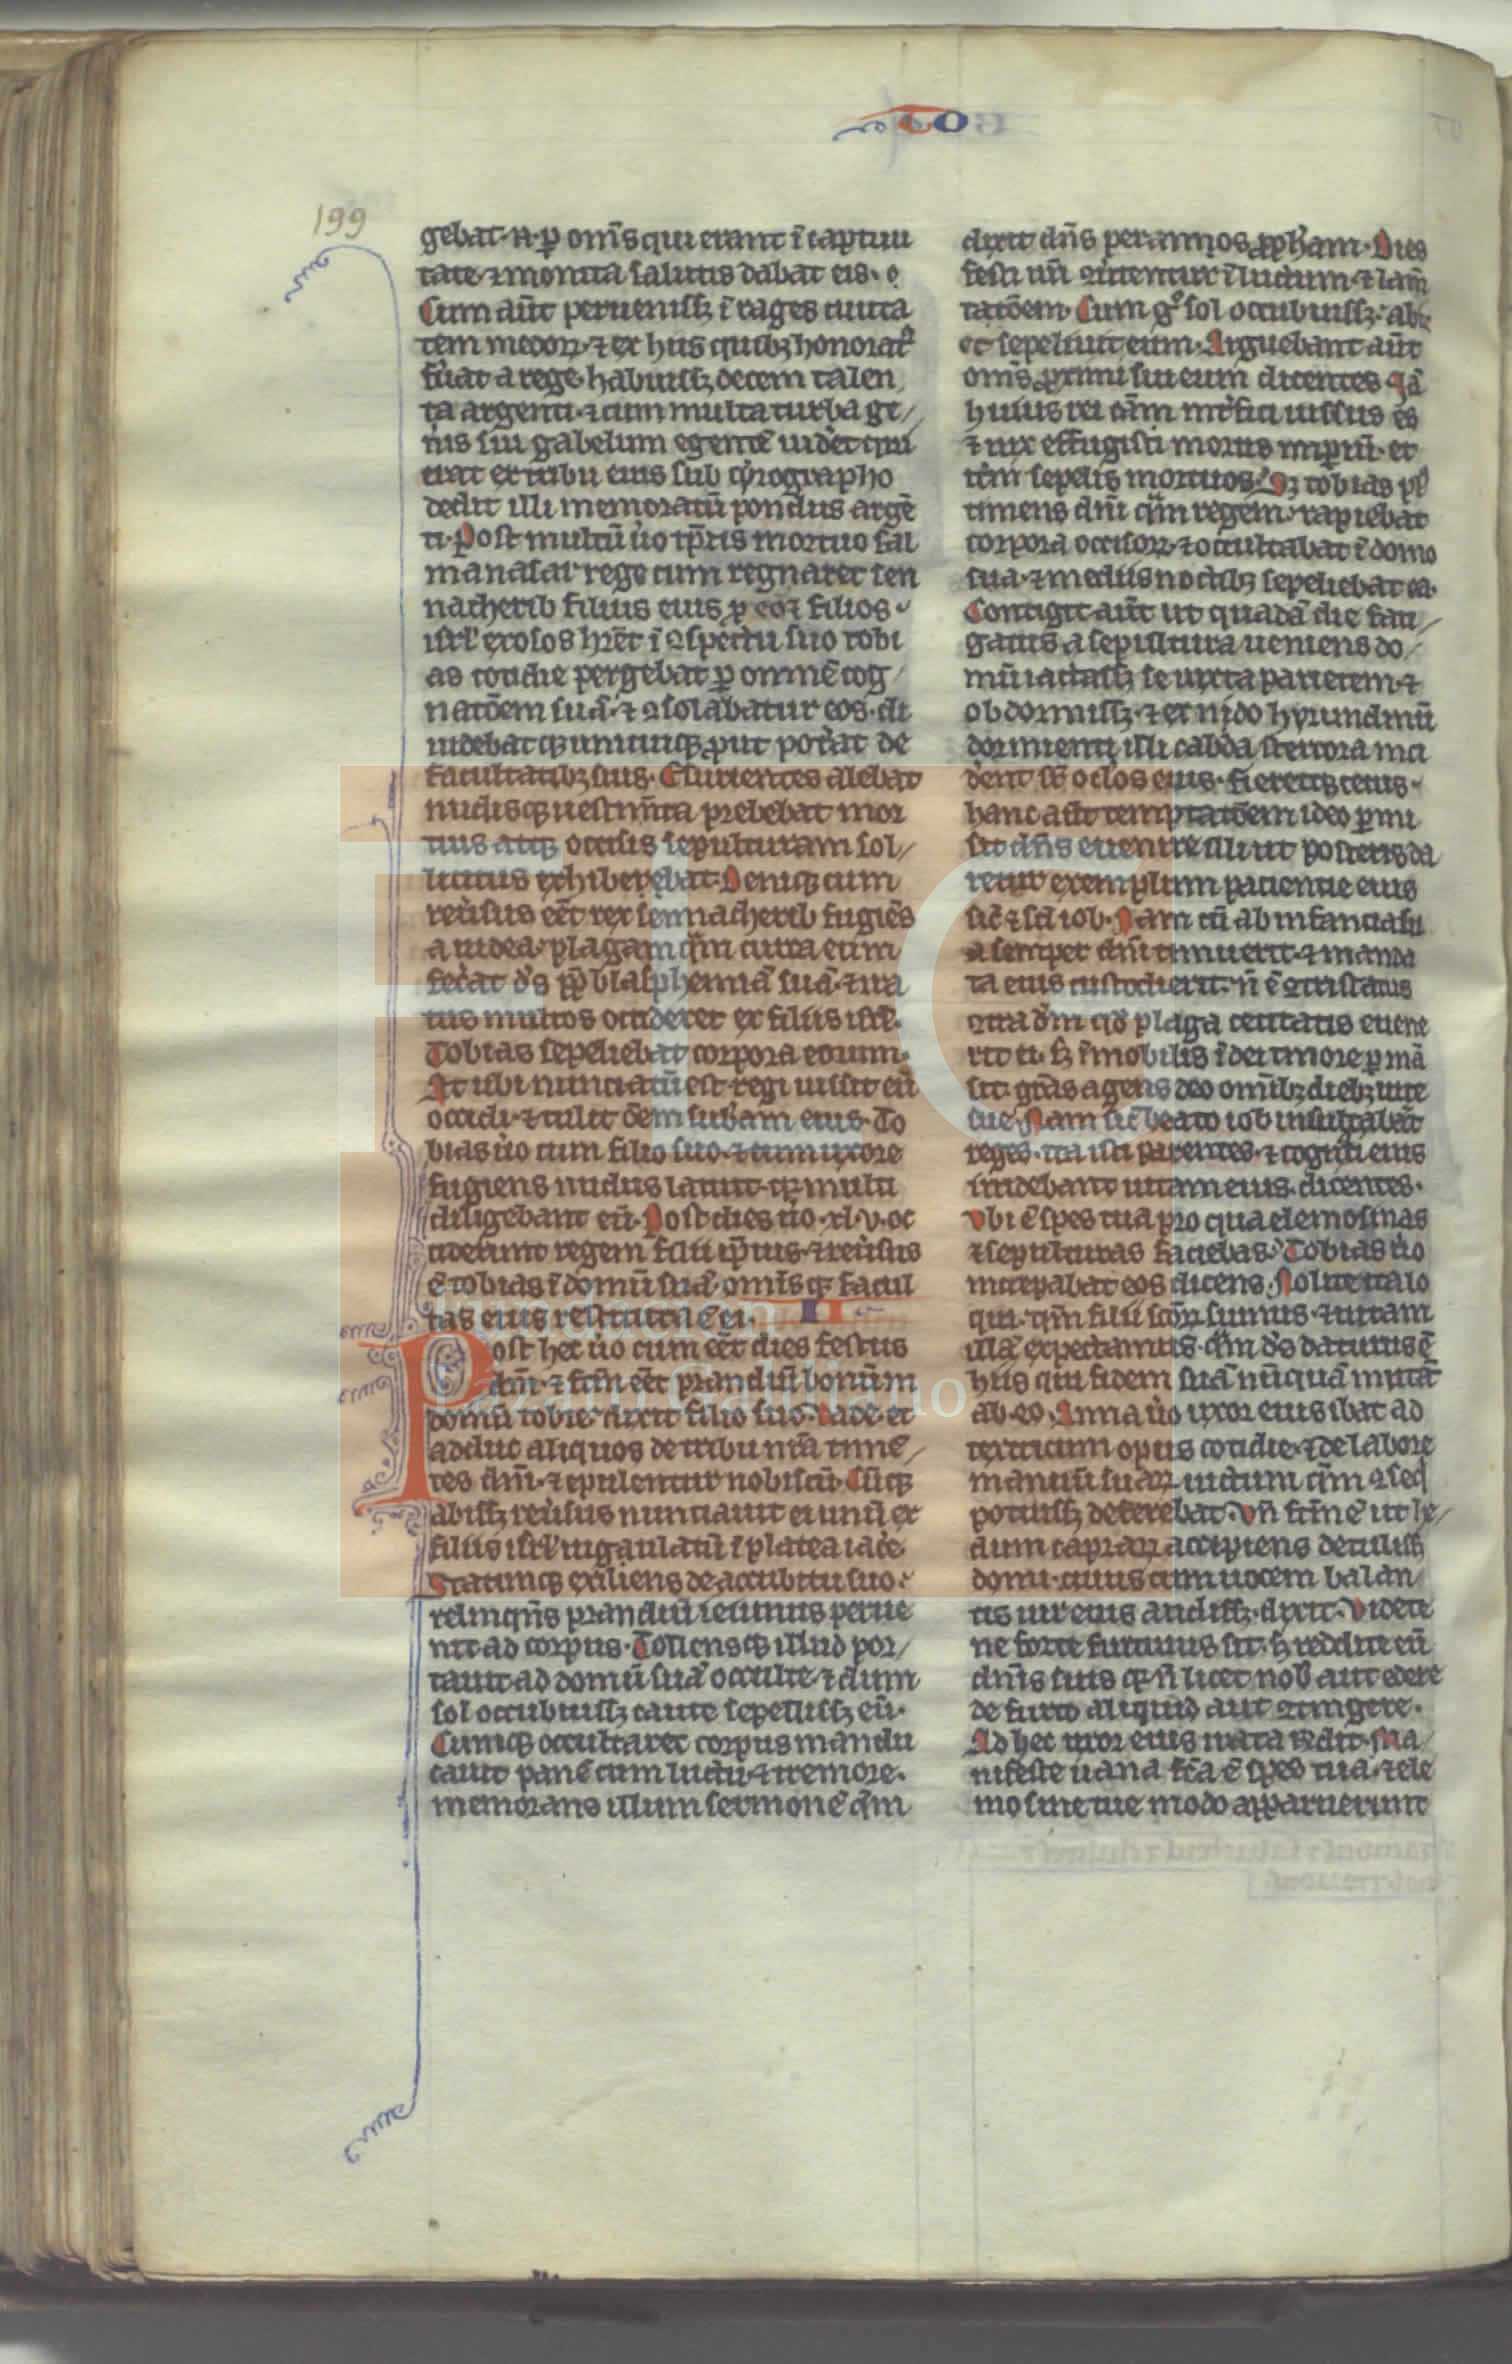 TO
199
gebat · n · ꝑ om̄s qui erant ī captiui
tate · ⁊ monita salutis dabat eis ·
Cum aūt peruenissꝫ ī rages ciuita
tem medoꝝ · ⁊ ex hiis quibꝫ honorat᷑
fu̾at a rege · habuissꝫ decem talen
ta argenti · ⁊ cum multa turba ge/
n̾is sui gabelum egentē uid̾et qui
erat ex tribu eius sub cyrographo
dedit illi memoratū pondus argē
ti · Post multū u̾o tp̄ris mortuo sal
manasar rege cum regnaret sen
nacherib filius eius ꝑ eo ⁊ filios
isrl̾ exosos hr̄et ī ꝯspectu suo tobi
as cotidie pergebat ꝑ omnē cog/
natōem suā · ⁊ ꝯsolabatur eos · di
uidebatqꝫ unicuiqꝫ ꝓut pot̾at de
facultatibꝫ suis · Esurientes alebat
nudisqꝫ uestim̄ta prebebat mor
tuis atqꝫ occisis sepulturam sol/
licitus exhibebat · Deniqꝫ cum
reu̾sus eēt rex sennacherib fugiēs
a iudea · plagam q̄m circa eum
fec̾at d̾s ꝓp̄ blasphemiā suā · ⁊ ira
tus multos occideret ex filiis isrl̾ ·
Tobias sepeliebat corpora eorum ·
At ubi nunciatū est regi iussit eū
occidi · ⁊ tulit ōem sub̄am eius · To
bias u̾o cum filio suo · ⁊ cum uxore
fugiens nudus latuit · qꝛ multi
diligebant eū · Post dies u̾o · xl · v · oc
ciderunt regem filii ip̄ius · ⁊ reu̾sus
ē tobias ī domū suā · om̄isqꝫ facul
tas eius restituta ē ei · II
Post hec u̾o cum eēt dies festus
dn̄i · ⁊ fc̄m eēt prandiū bonum ī
domū tobie · dixit filio suo · Uade · et
adduc aliquos de tribu nr̄a timē/
tes dn̄m · ⁊ epulentur nobiscū · Cūqꝫ
abissꝫ reu̾sus nunciauit ei unū ex
filiis isrl̾ iugulatū ī platea iac̾e ·
Statimqꝫ exiliens de accubitu suo ·
relinqn̄s prandiū ieiunus perue
nit ad corpus · Tollensqꝫ illud por/
tauit ad domū suā occulte · ⁊ dum
sol occubuissꝫ caute sepelissꝫ eū ·
Cumqꝫ occultaret corpus mandu
cauit panē cum luctu · ⁊ tremore ·
memorans illum sermonē q̄m
dixit dn̄s per amos ꝓph̾am · Dies
festi ur̄i ꝯuertentur ī luctum · ⁊ lam̄
tatōem · Cum gͦ sol occubuissꝫ · abiit
et sepeliuit eum · Arguebant aūt
om̄s ꝓximi sui eum dicentes · Iā
huius rei cām int̾fici iussus es
⁊ uix effugisti mortis imꝑiū · et
it̾m sepelis mortuos · Sꝫ tobias pl̾
timens dn̄m qͣm regem · rapiebat
corpora occisoꝝ · ⁊ occultabat ī domo
sua · ⁊ mediis noctibꝫ sepeliebat ea ·
Contigit aūt ut quadā die fati/
gatus a sepultura ueniens do/
mū iactassꝫ se iuxta parietem · ⁊
obdormissꝫ · ⁊ ex nido hyrundinū
dormienti illi calida stercora inci
d̾ent sr̄ oc̾los eius · fieretqꝫ cecus ·
hanc aūt temptatōem ideo ꝑmi
sit dn̄s euenire illi ut posteris da
retur exemplum paciencie eius
sic̄ ⁊ sc̄i iob · Nam cū ab infancia su
a semper dn̄m timuerit · ⁊ manda
ta eius custodierit · n̄ ē ꝯtristatus
ꝯtra d̄m qd̾ plaga cecitatis euene
rit ei · sꝫ īmobilis ī dei timore ꝑmā
sit · gr̄as agens deo om̄ibꝫ diebꝫ uite
sue · Nam sic̄ beato iob insultabāt
reges · ita isti parentes · ⁊ cognati eius
irridebant uitam eius · dicentes ·
Ubi ē spes tua pro qua elemosinas
⁊ sepulturas faciebas · Tobias u̾o
increpabat eos dicens · Nolite ita lo
qui · qm̄ filii sc̄oꝝ sumus · ⁊ uitam
illā expectamus · q̄m d̾s daturus ē
hiis qui fidem suā nūquā mutāt
ab · eo · Anna u̾o uxor eius ibat ad
textrinum opus cotidie · ⁊ de labore
manuū suaꝝ uictum q̄m ꝯseq̄
potuissꝫ deferebat · Un̄ fc̄m ē ut he/
dum capraꝝ accipiens detulissꝫ
domi · cuius cum uocem balan/
tis uir eius audissꝫ · dixit · Videte
ne forte furtiuus sit · h̄ reddite eū
dn̄is suis qꝛ n̄ licet nob̾ aut edere
de furto aliquid aut ꝯtingere ·
Ad hec uxor eius irata rn̄dit · Ma/
nifeste uana fc̄a ē spes tua · ⁊ ele
mosine tue modo apparuerunt